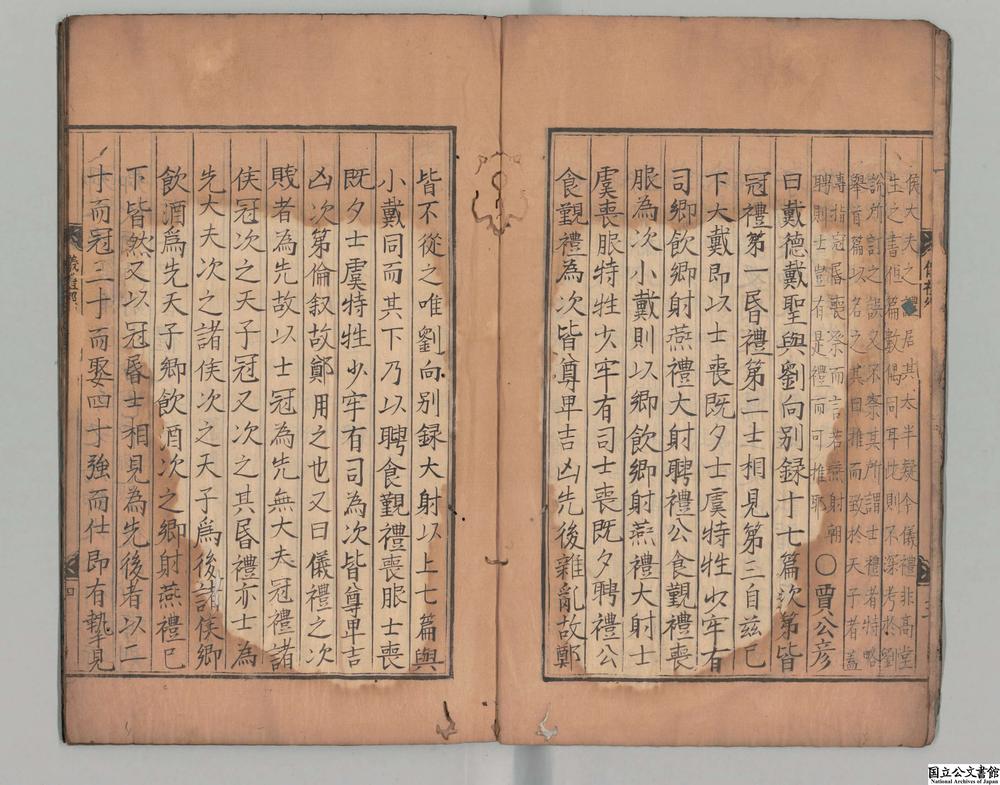 侯大夫之禮居其太半疑今儀禮非高堂
生之書但篇數偶同耳此則不深考於劉
說所訂之誤又不察其所謂士禮者特略
舉首篇以名之其曰推而致於天子者蓋
專指冠昏喪祭而言若燕射朝
聘則士豈有是禮而可推耶
〇賈公彦
曰戴德戴聖與劉向别録十七篇次第皆
冠禮第一昬禮第二士相見第三自兹已
下大戴即以士喪既夕士虞特牲少牢有
司鄉飲鄉射燕禮大射聘禮公食覲禮喪
服為次小戴則以鄉飲鄉射燕禮大射士
虞喪服特牲少牢有司士喪既夕聘禮公
食覲禮為次皆尊卑吉凶先後雜亂故鄭
皆不從之唯劉向别録大射以上七篇與
小戴同而其下乃以聘食覲禮喪服士喪
既夕士虞特牲少牢有司為次皆尊卑吉
凶次第倫叙故鄭用之也又曰儀禮之次
賤者為先故以士冠為先無大夫冠禮諸
侯冠次之天子冠又次之其昬禮亦士為
先大夫次之諸侯次之天子爲後諸侯鄉
飲酒爲先天子鄉飲酒次之鄉射燕禮已
下皆然又以冠昬士相見為先後者以二
十而冠三十而娶四十強而仕即有摯見
四
国立公文書館
National Archives of Japan